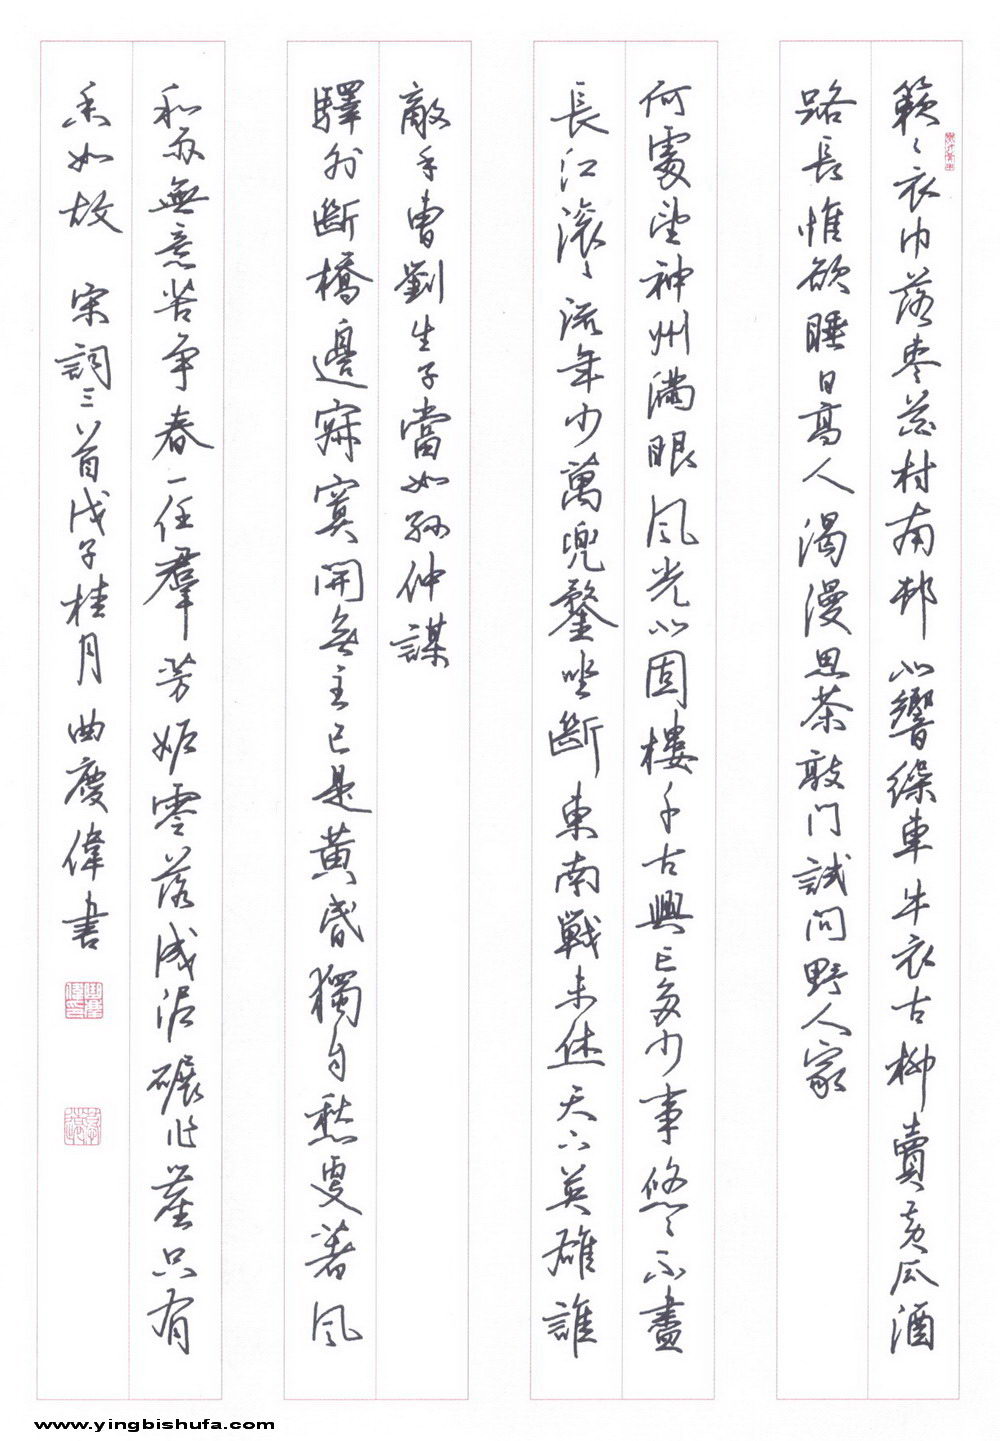 簌〻衣巾落枣花村南邨北響繰車牛衣古柳賣黄瓜酒
路長惟欲睡日高人渴漫思茶敲门試问野人家
何處望神州滿眼风光北固樓千古興亡多少事悠〻不盡
長江滚〻流年少萬兜鍪坐斷東南戰未休天下英雄誰
敵手曹劉生子當如孫仲謀
驛外斷橋邊寂寞開無主已是黃昏獨自愁更著风
和雨無意苦争春一任羣芳妒零落成泥碾作塵只有
香如故 宋詞三首戊子桂月曲慶偉書
www.yingbishufa.com